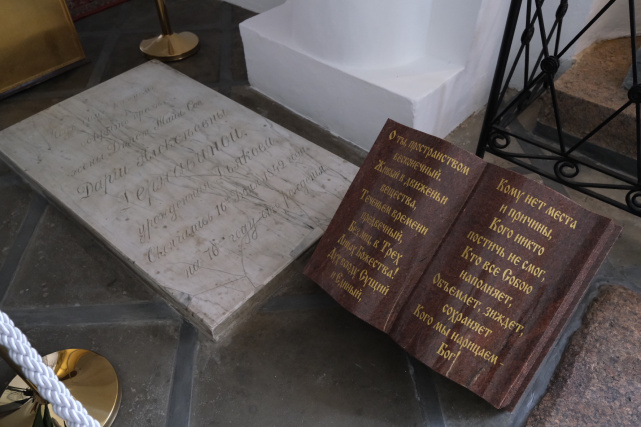 Дарьи Алексеевны
Державиной,
урожденной Дьяковой
О ты, пространством
бесконечный,
Живый в движеньи
вещества,
Теченьем времени
превечный,
Без лиц, в Трех
Лицах Божества!
Дух всюду Сущий
и Единый,
Кому нет места
и причины,
Кого никто
постичь не смог.
Кто все Собою
наполняет,
Объемлет, зиждет,
сохраняет
Кого мы нарицаем...
Бог!